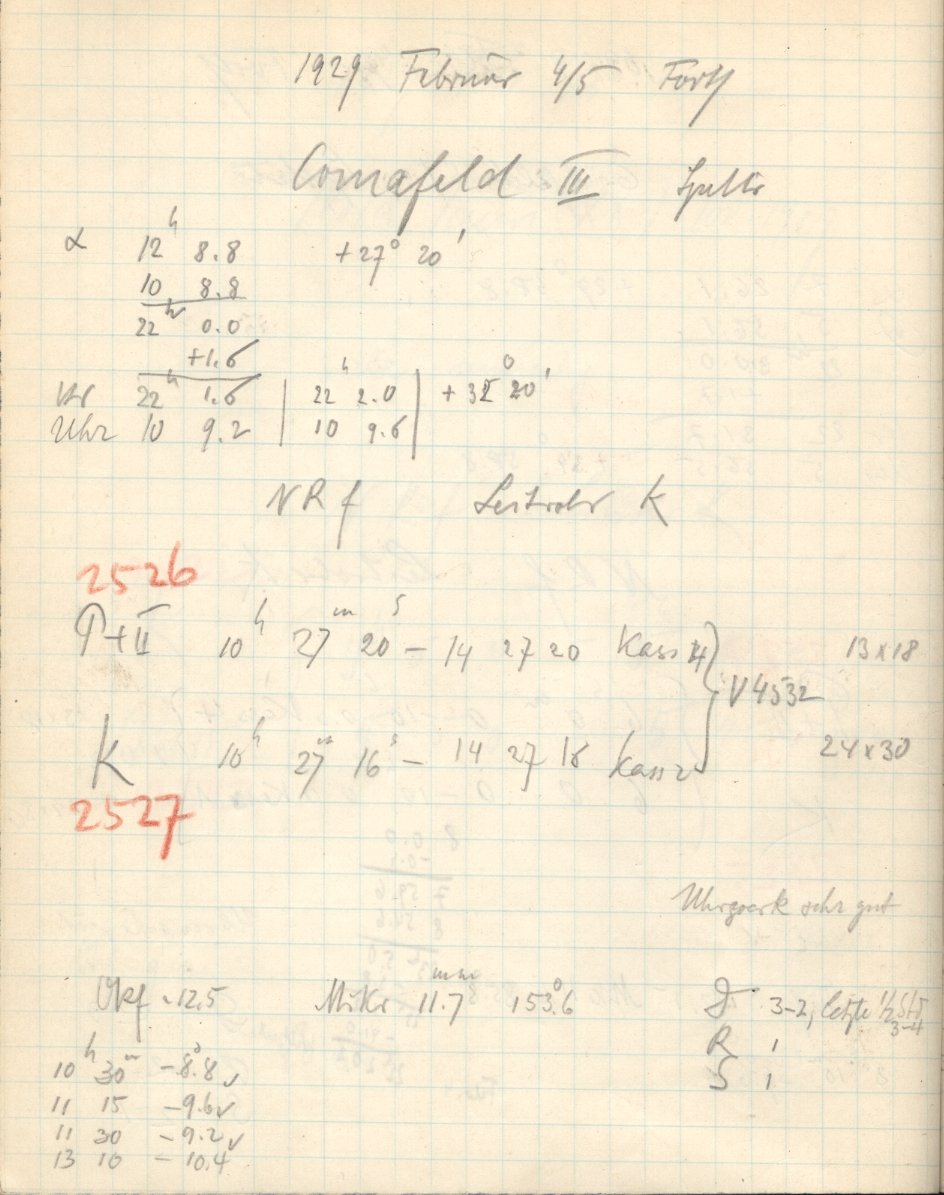 1929 Februar 4/5
Comafeld III
α 12h 8.8 +27° 20'
10 8.8
22h 0.0
+1.6
22h 1.6 | 22h 2.0 | +32° 20'
Uhr 10 9.2 | 10 9.6 |
NRf Leitrohr K
2526
P+II 10h 27m 20s – 14 27 20 Kass 4 13x18
V 4532
K 10h 27m 16s – 14 27 18 Kass 2 24x30
2527
Uhrwerk sehr gut
Okf -12.5 Mikr 11.7mm 153.°6 3-2, letzte 1/2 Std 3-4
R 1
S 1
10h 30m -8.°8 ✓
11 15 -9.6 ✓
11 30 -9.2 ✓
13 10 -10.4